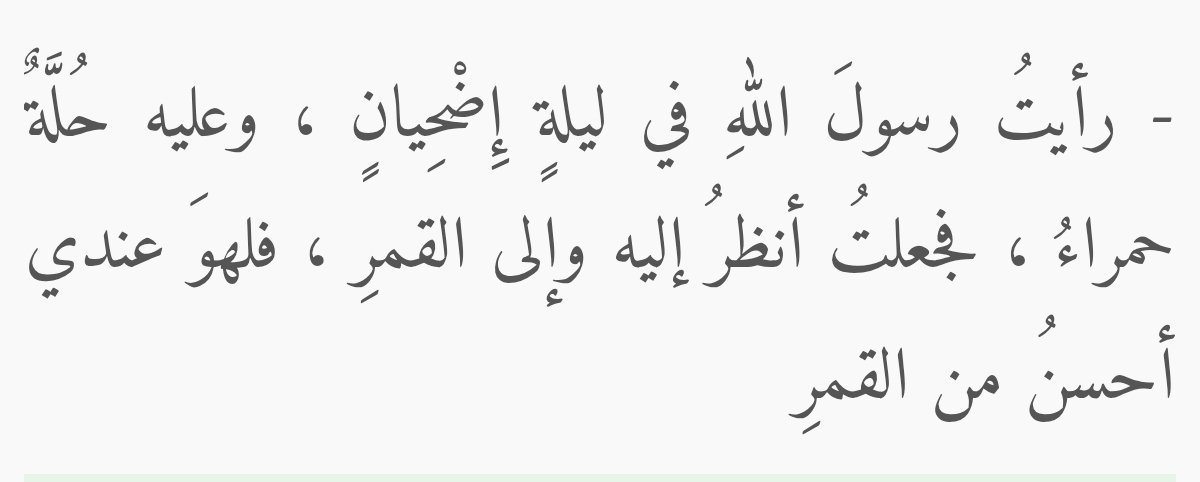 - رأيتُ رسولَ اللهِ في ليلةٍ إِضْحِيانٍ ، وعليه حُلَّةٌ
حمراءُ ، فجعلتُ أنظرُ إليه وإلى القمرِ ، فلهوَ عندي
أحسنُ من القمرِ